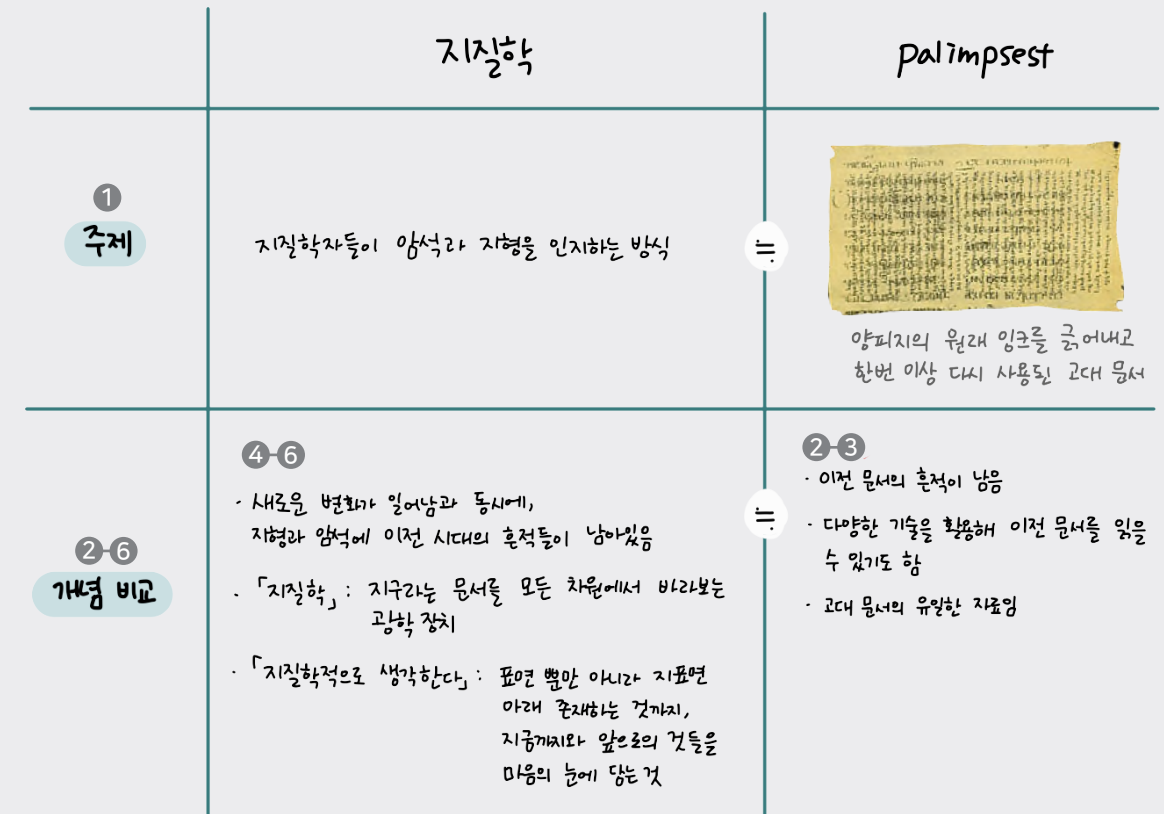 지질학
palimpsest
1
주제
지질학자들이 암석과 지형을 인지하는 방식
≒
양피지의 원래 잉크를 긁어내고
한번 이상 다시 사용된 고대 문서
2-6
개념 비교
4-6
· 새로운 변화가 일어남과 동시에,
지형과 암석에 이전 시대의 흔적들이 남아있음
· 「지질학」 : 지구라는 문서를 모든 차원에서 바라보는
광학 장치
· 「지질학적으로 생각한다」 : 표면 뿐만 아니라 지표면
아래 존재하는 것까지,
지금까지와 앞으로의 것들을
마음의 눈에 담는 것
≒
2-3
· 이전 문서의 흔적이 남음
· 다양한 기술을 활용해 이전 문서를 읽을
수 있기도 함
· 고대 문서의 유일한 자료임